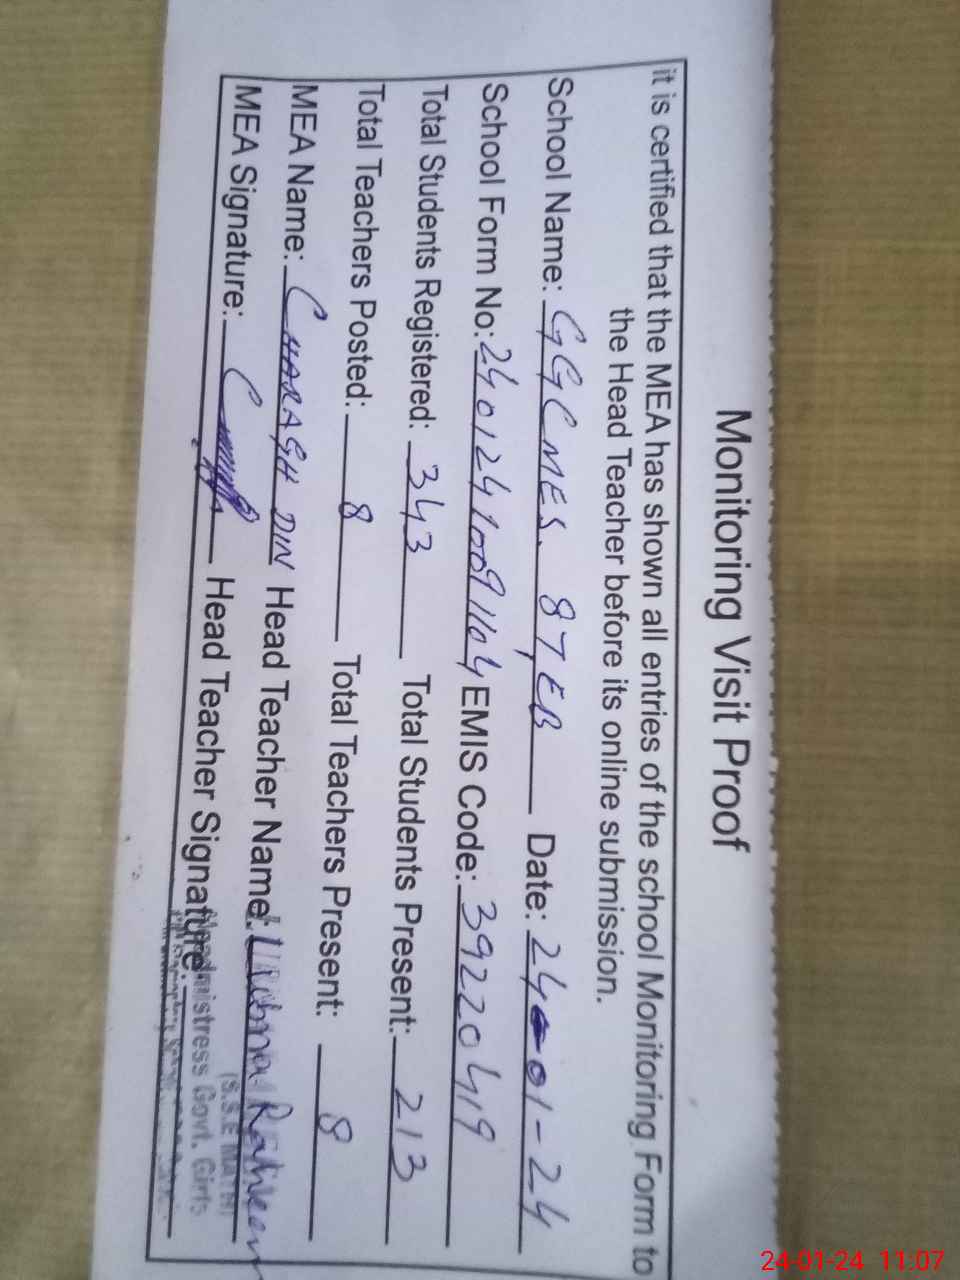 Monitoring Visit Proof
it is certified that the MEA has shown all entries of the school Monitoring Form to
the Head Teacher before its online submission.
School Name: GGCMES. 87, EB Date: 24-01-24
School Form No: 24012410091104 EMIS Code: 39220419
Total Students Registered: 343 Total Students Present: 213
Total Teachers Posted: 8 Total Teachers Present: 8
MEA Name: CHARAGH DIN Head Teacher Name: Lubna Raheem
(S.S.E MATH)
MEA Signature: Head Teacher Signature:
Headmistress Govt. Girls
24-01-24 11:07